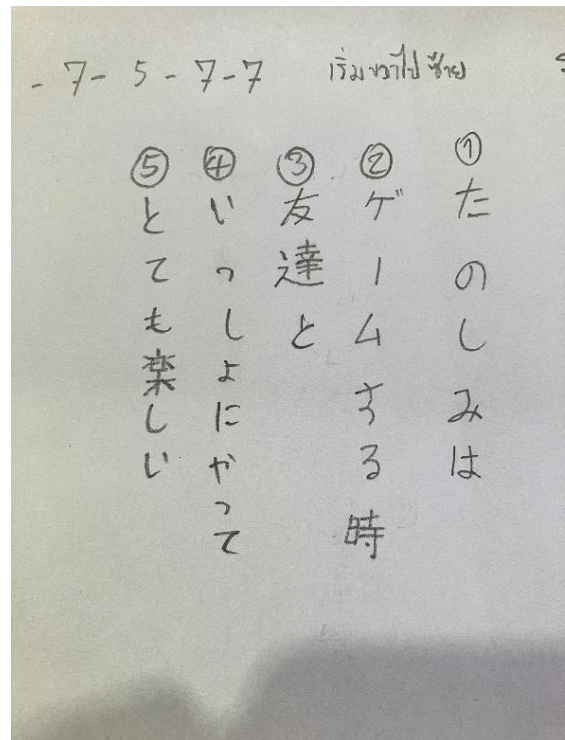 - 7 - 5 - 7 - 7 เริ่มขวาไปซ้าย
① たのしみは
② ゲームする時
③ 友達と
④ いっしょにやって
⑤ とても楽しい